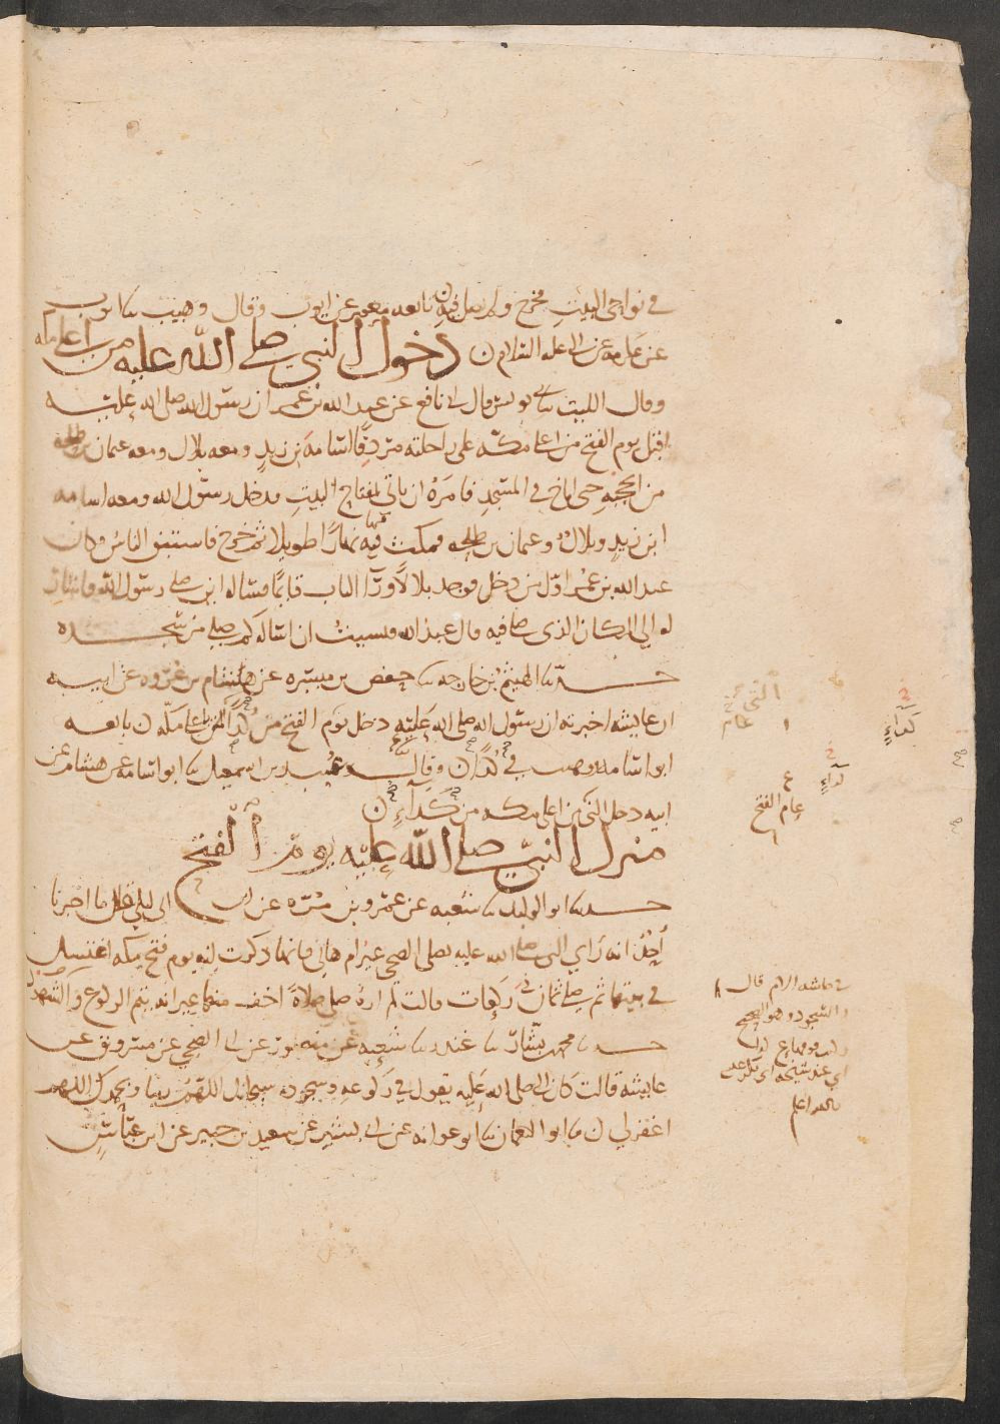 في نواحي البيت فخرج ولم يصل فيه ن تابعه معمر عن ايوب وقال وهيب سا ايوب
عن عكرمة عن النبي عليه السلام ن دخول النبي صلى الله عليه من اعلى مكة
وقال الليث سا يونس قال نا نافع عن عبد الله بن عمر ان رسول الله صلى الله عليه
اقبل يوم الفتح من اعلى مكة على راحلته مردفا اسامة بن زيد ومعه بلال ومعه عثمان بن طلحة
من الحجبة حتى اناخ في المسجد فامره ان ياتي بمفتاح البيت فدخل رسول الله ومعه اسامة
ابن زيد وبلال وعثمان بن طلحة فمكث فيه نهارا طويلا ثم خرج فاستبق الناس وكان
عبد الله بن عمر اول من دخل فوجد بلالا ورآ الباب قايما فساله اين صلى رسول الله فاشار
له الى المكان الذي صلى فيه قال عبد الله فنسيت ان اساله كم صلى من سجدة
حدثنا الهيثم بن خارجة سا حفص بن ميسرة عن هشام بن عروة عن ابيه
ان عايشة اخبرته ان رسول الله صلى الله عليه دخل يوم الفتح من كدا التي باعلى مكة ن تابعه
ابو اسامة ووهيب في كدا ن وقال سا عبيد بن اسمعيل سا ابو اسامة عن هشام عن
ابيه دخل النبي من اعلى مكة من كداء ن
منزل النبي صلى الله عليه يوم الفتح
حدثنا ابو الوليد سا شعبة عن عمرو بن مرة عن ابن ابي ليلى قال ما اخبرنا
احد انه راي النبي صلى الله عليه يصلي الضحى غير ام هاني فانها ذكرت انه يوم فتح مكة اغتسل
في بيتها ثم صلى ثمان ركعات قالت لم اره صلى صلاة اخف منها غير انه يتم الركوع والسجود
حدثنا محمد بن بشار سا غندر سا شعبة عن منصور عن ابي الضحى عن مسروق عن
عايشة قالت كان النبي صلى الله عليه يقول في ركوعه وسجوده سبحانك اللهم ربنا وبحمدك اللهم
اغفر لي ن سا ابو النعمان سا ابو عوانة عن ابي بشر عن سعيد بن جبير عن ابن عباس
عام
كداء
كداء
عام الفتح
في حاشية الام قال
والسجود وهو الصحيح
والله اعلم